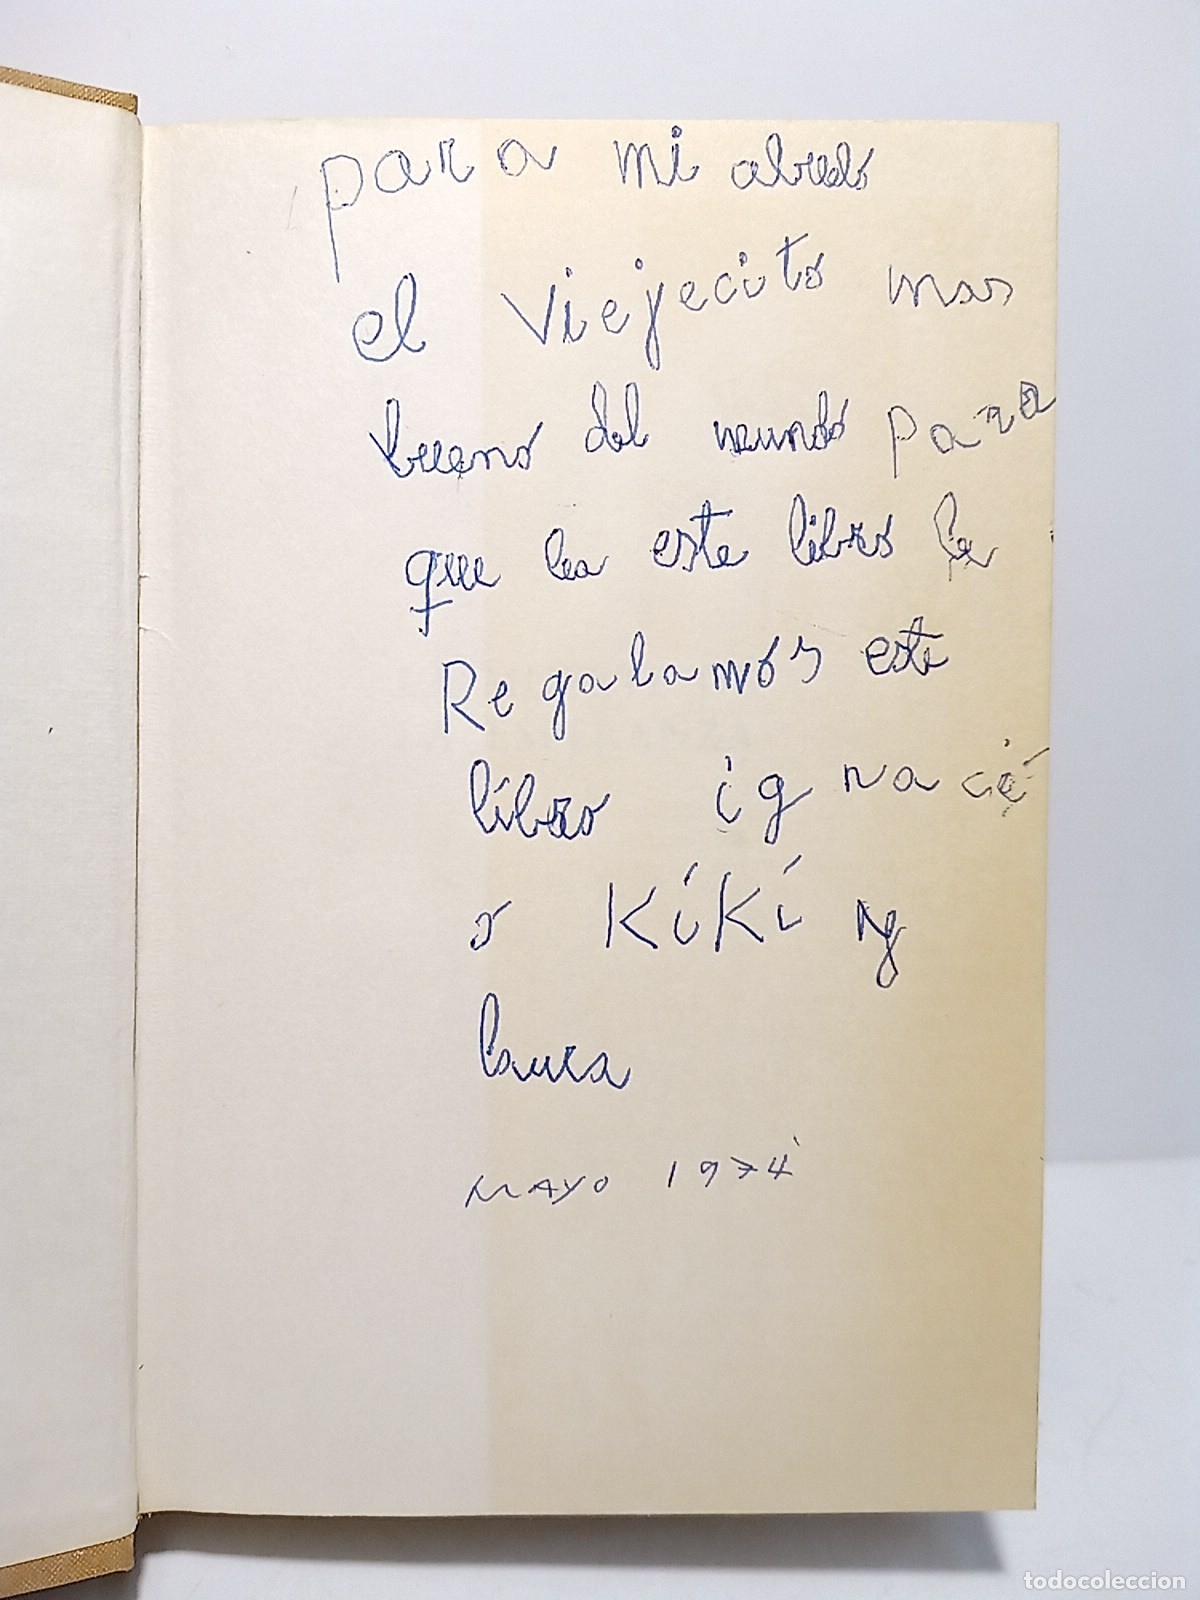 para mi abuelo
el viejecito mas
bueno del mundo para
que lea este libro le
Regalamos este
libro ignaci
o KíKí y
laura
MAYO 1974
todocoleccion